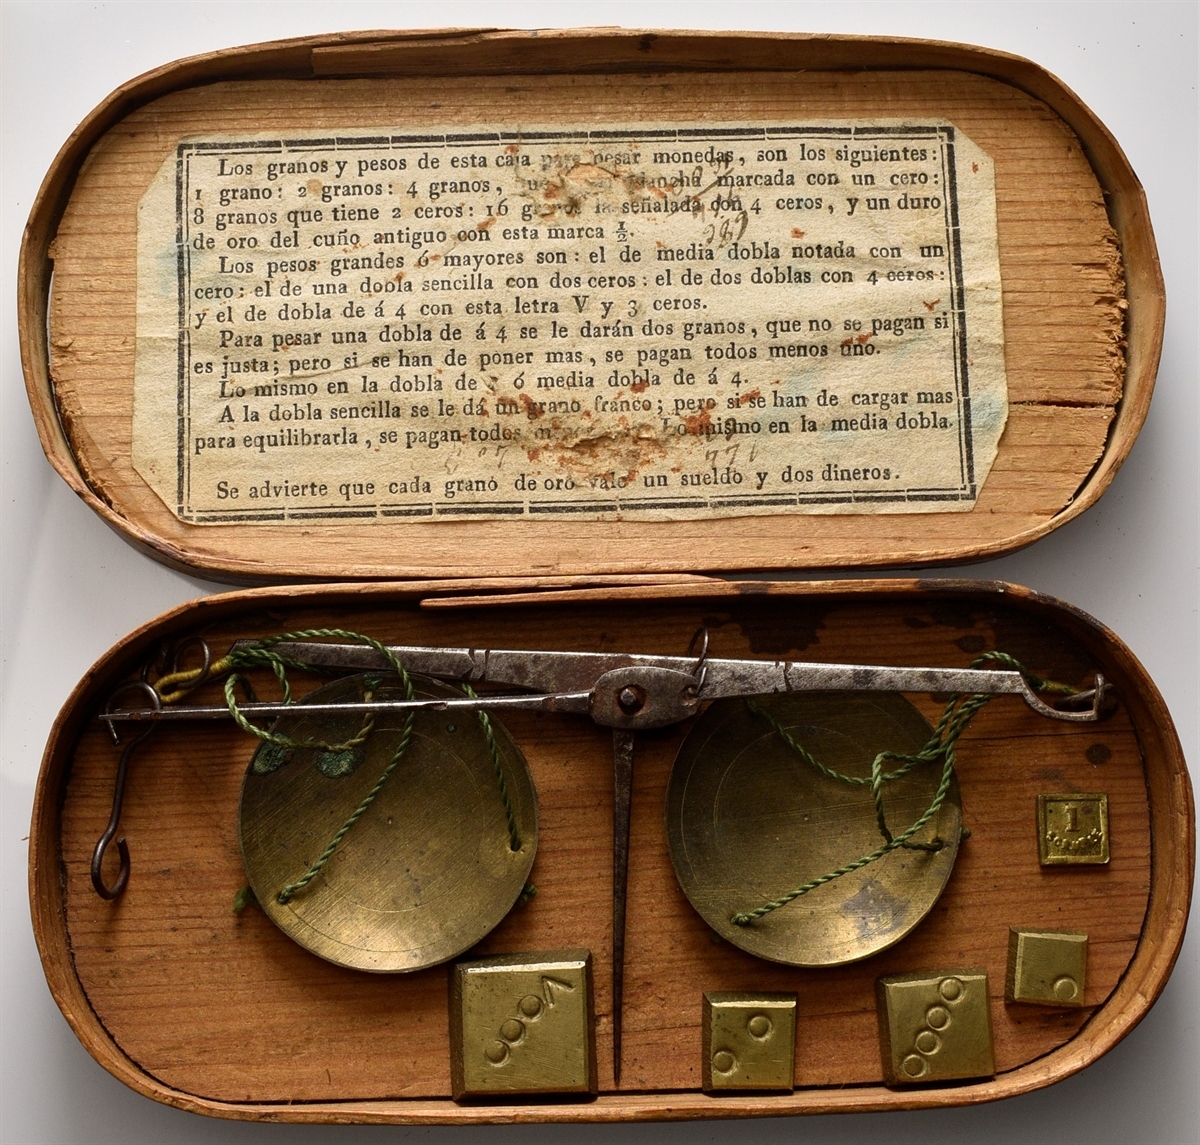 Los granos y pesos de esta caja para pesar monedas, son los siguientes:
1 grano: 2 granos: 4 granos, marcada con un cero:
8 granos que tiene 2 ceros: 16 la señalada con 4 ceros, y un duro
de oro del cuño antiguo con esta marca ½.
Los pesos grandes ó mayores son: el de media dobla notada con un
cero: el de una dobla sencilla con dos ceros: el de dos doblas con 4 ceros:
y el de dobla de á 4 con esta letra V y 3 ceros.
Para pesar una dobla de á 4 se le darán dos granos, que no se pagan si
es justa; pero si se han de poner mas, se pagan todos menos uno.
Lo mismo en la dobla de ó media dobla de á 4.
A la dobla sencilla se le dá un grano franco; pero si se han de cargar mas
para equilibrarla, se pagan todos Lo mismo en la media dobla.
Se advierte que cada grano de oro vale un sueldo y dos dineros.
1
V